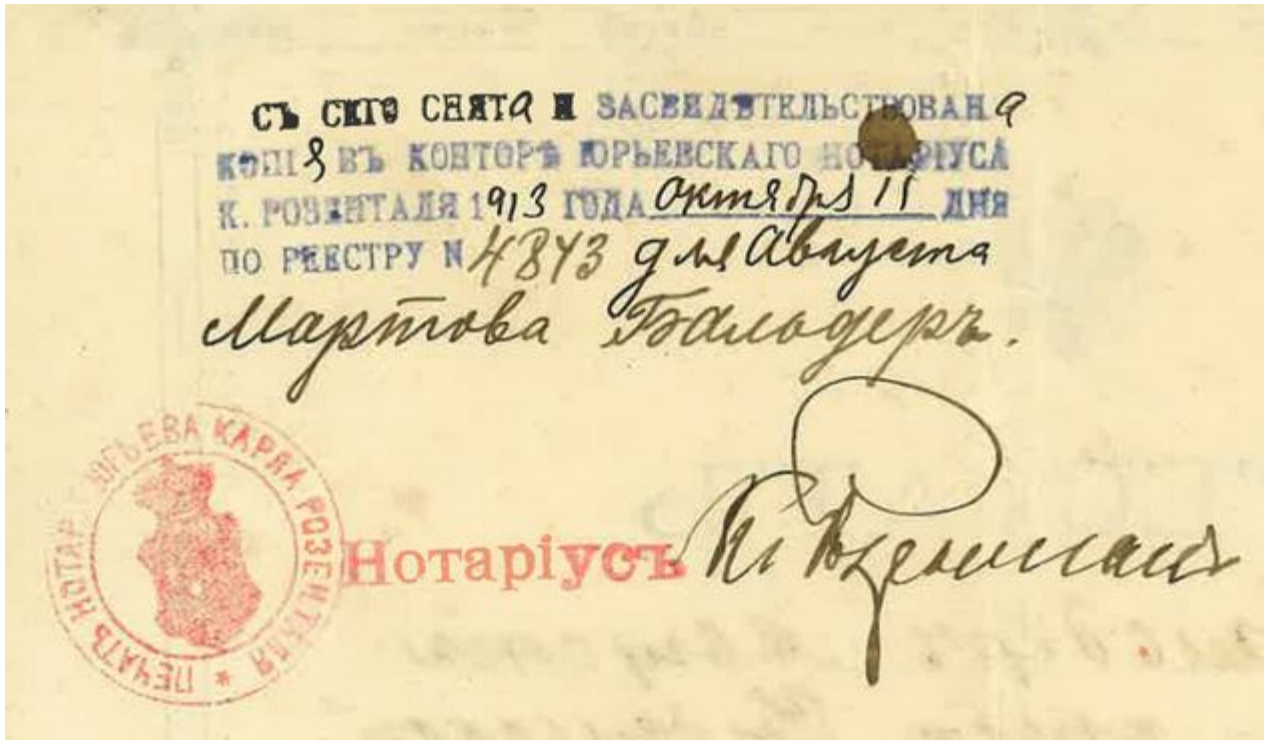 СЪ СЕГО СНЯТА И ЗАСВИДѢТЕЛЬСТВОВАНА
КОПІЯ ВЪ КОНТОРѢ ЮРЬЕВСКАГО НОТАРІУСА
К. РОЗЕНТАЛЯ 1913 ГОДА октября 11 ДНЯ
ПО РЕЕСТРУ N 4843 для Августа
Мартова Бальодеръ.
ПЕЧАТЬ НОТАР ЮРЬЕВА КАРЛА РОЗЕНТАЛЯ *
Нотаріусъ